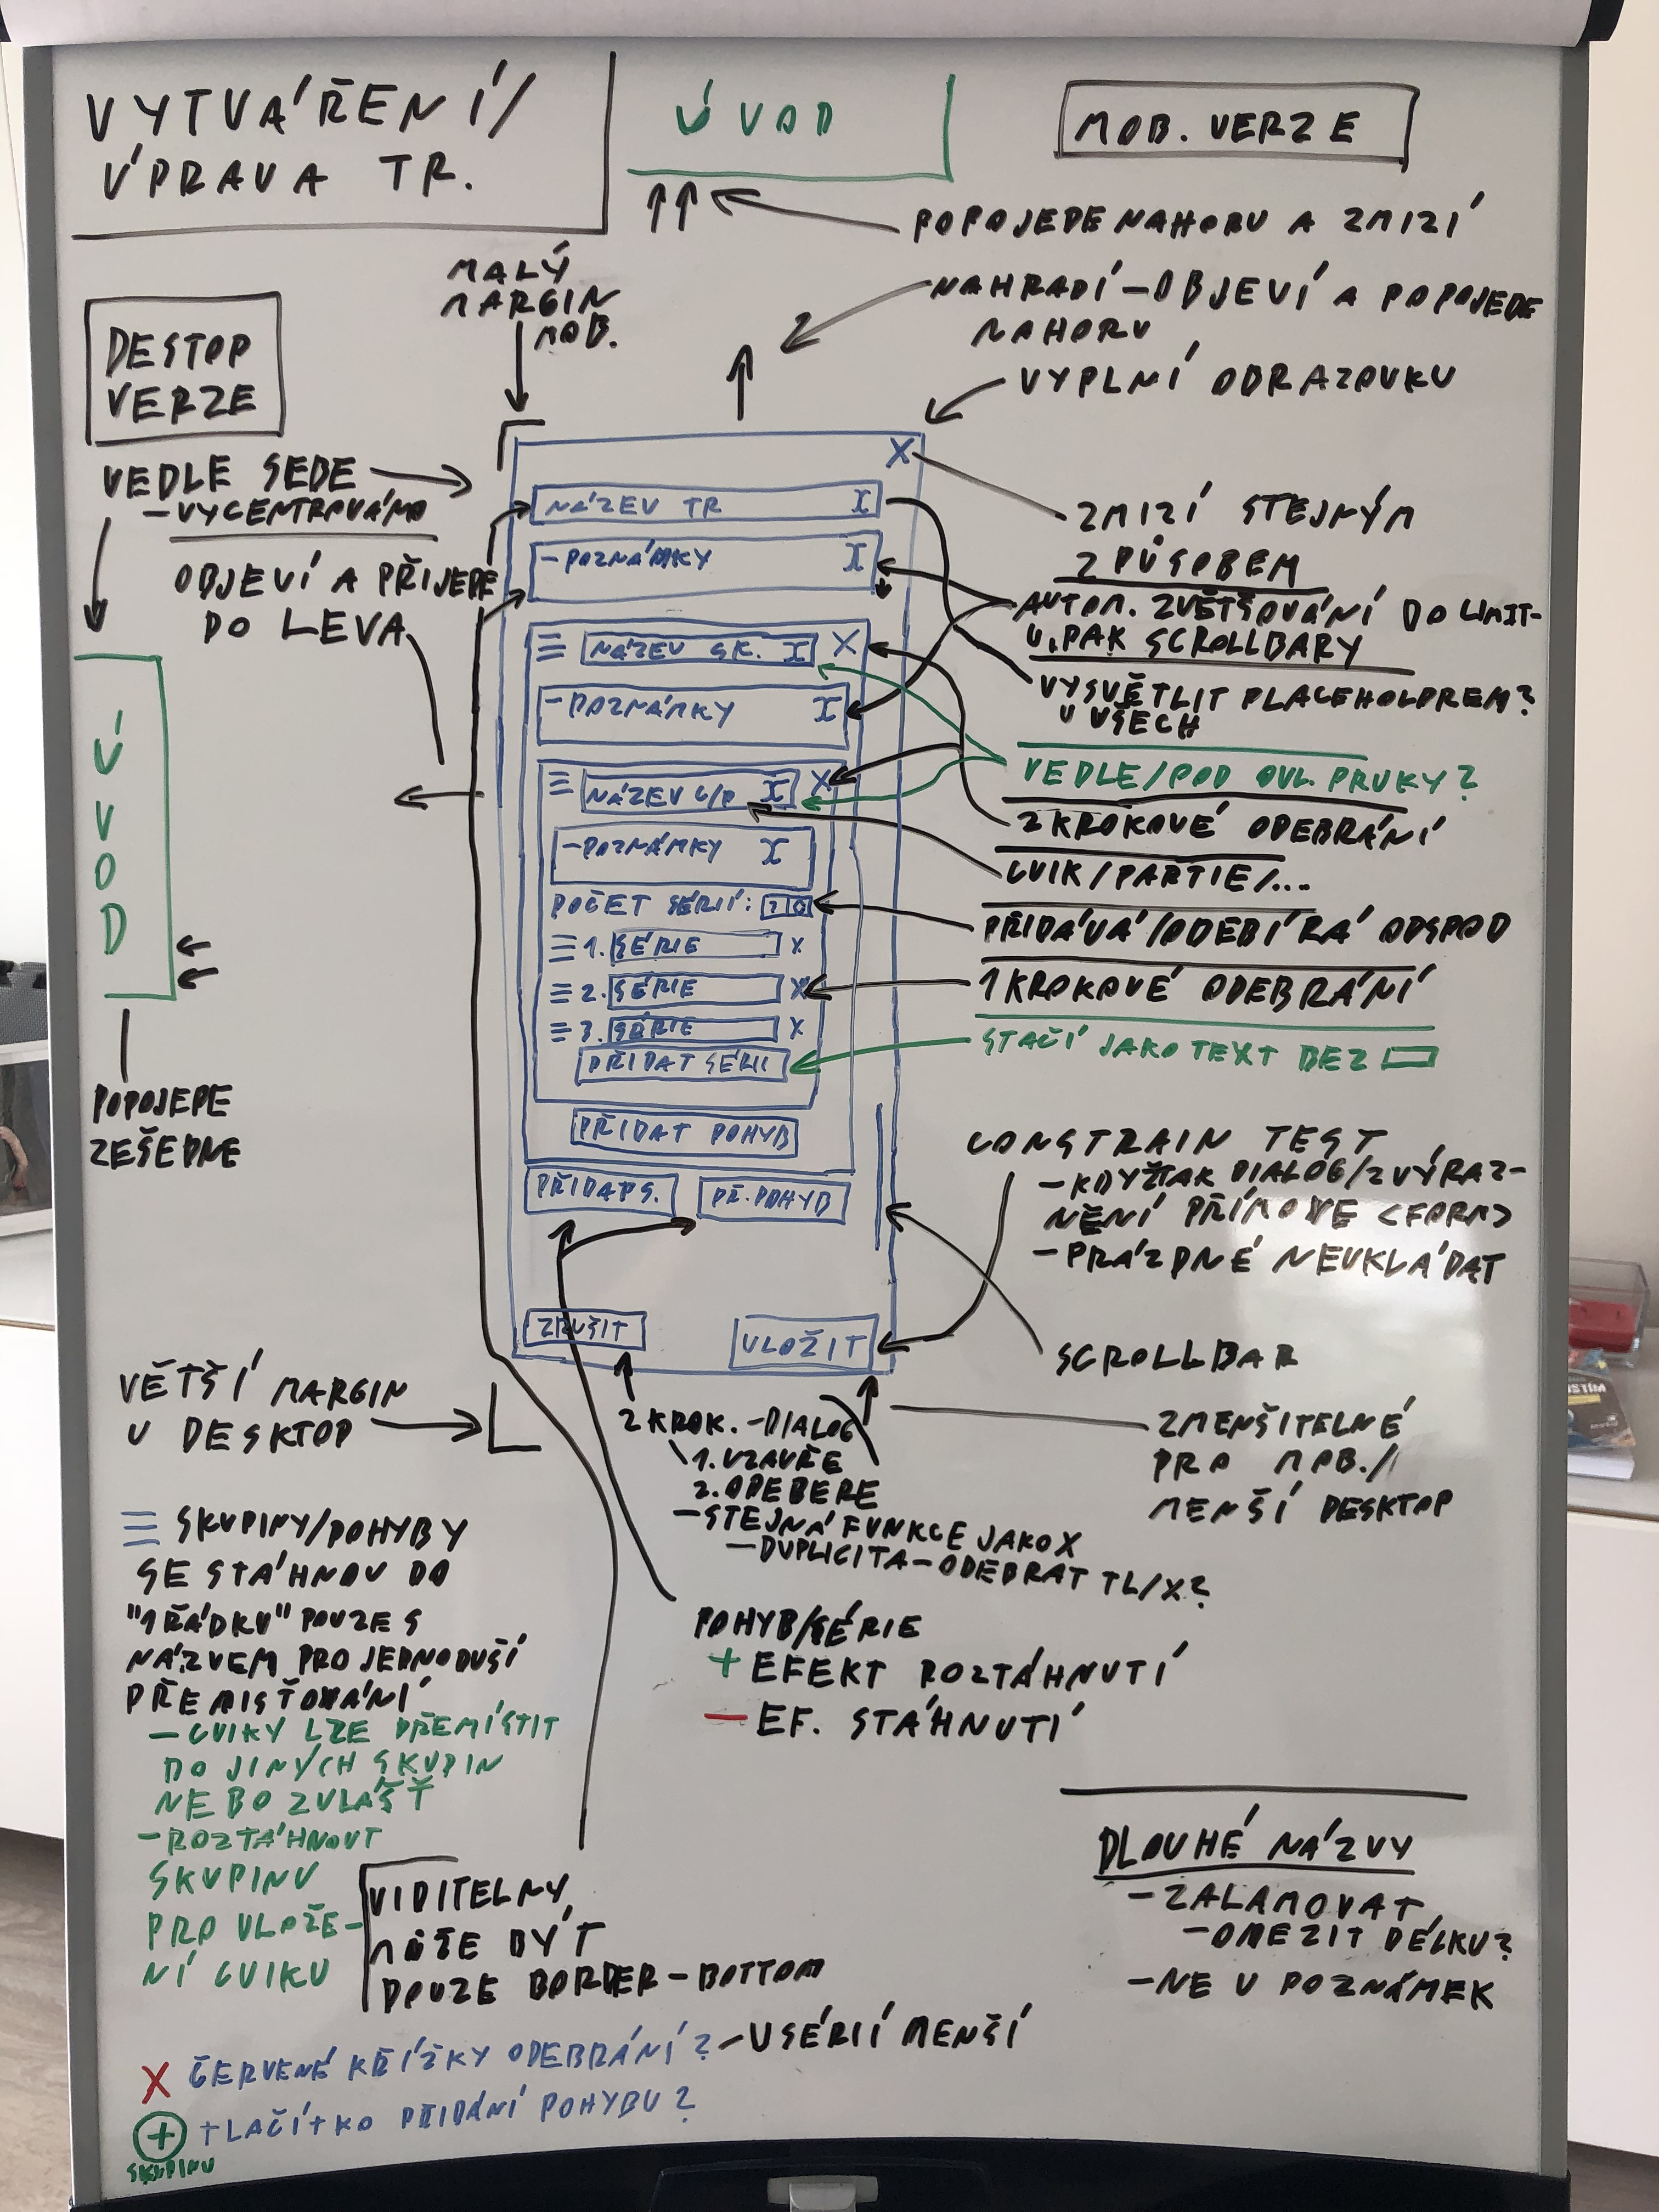 VYTVÁŘENÍ/
ÚPRAVA TR.
ÚVOD
MOB. VERZE
POPOJEDE NAHORU A ZMIZÍ
MALÝ
MARGIN
MOB.
NAHRADÍ – OBJEVÍ A POPOJEDE
NAHORU
VYPLNÍ OBRAZOVKU
DESTOP
VERZE
VEDLE SEBE
– VYCENTROVÁNO
OBJEVÍ A PŘIJEDE
DO LEVA
ÚVOD
POPOJEDE
ZEŠEDNE
X
NÁZEV TR
– POZNÁMKY
NÁZEV SK. X
– POZNÁMKY
NÁZEV C/P X
– POZNÁMKY
POČET SÉRIÍ:
1. SÉRIE X
2. SÉRIE X
3. SÉRIE X
PŘIDAT SÉRII
PŘIDAT POHYB
PŘIDAT S.
PŘ. POHYB
ZRUŠIT
ULOŽIT
ZMIZÍ STEJNÝM
ZPŮSOBEM
AUTOM. ZVĚTŠOVÁNÍ DO LIMIT-
U, PAK SCROLLBARY
VYSVĚTLIT PLACEHOLDREM?
U VŠECH
VEDLE/POD OVL. PRVKY?
2 KROKOVÉ ODEBRÁNÍ
CVIK/PARTIE/...
PŘIDÁVÁ/ODEBÍRÁ ODSPOD
1 KROKOVÉ ODEBRÁNÍ
STAČÍ JAKO TEXT BEZ
CONSTRAIN TEST
– KDYŽTAK DIALOG/ZVÝRAZ-
NĚNÍ PŘÍMO VE <FORM>
– PRÁZDNÉ NEUKLÁDAT
SCROLLBAR
ZMENŠITELNÉ
PRO MOB./
MENŠÍ DESKTOP
VĚTŠÍ MARGIN
U DESKTOP
2 KROK. – DIALOG
1. UZAVŘE
2. ODEBERE
– STEJNÁ FUNKCE JAKO X
– DUPLICITA – ODEBRAT TL/X?
SKUPINY/POHYBY
SE STÁHNOU DO
"1 ŘÁDKU" POUZE S
NÁZVEM PRO JEDNODUŠÍ
PŘEMISŤOVÁNÍ
– CVIKY LZE PŘEMÍSTIT
DO JINÝCH SKUPIN
NEBO ZVLÁŠŤ
– ROZTÁHNOUT
SKUPINU
PRO VLOŽE-
NÍ CVIKU
POHYB/SÉRIE
+ EFEKT ROZTÁHNUTÍ
– EF. STÁHNUTÍ
VIDITELNÝ,
MŮŽE BÝT
POUZE BORDER – BOTTOM
DLOUHÉ NÁZVY
– ZALAMOVAT
– OMEZIT DÉLKU?
– NE U POZNÁMEK
X ČERVENÉ KŘÍŽKY ODEBRÁNÍ? – U SÉRIÍ MENŠÍ
+ TLAČÍTKO PŘIDÁNÍ POHYBU?
SKUPINU